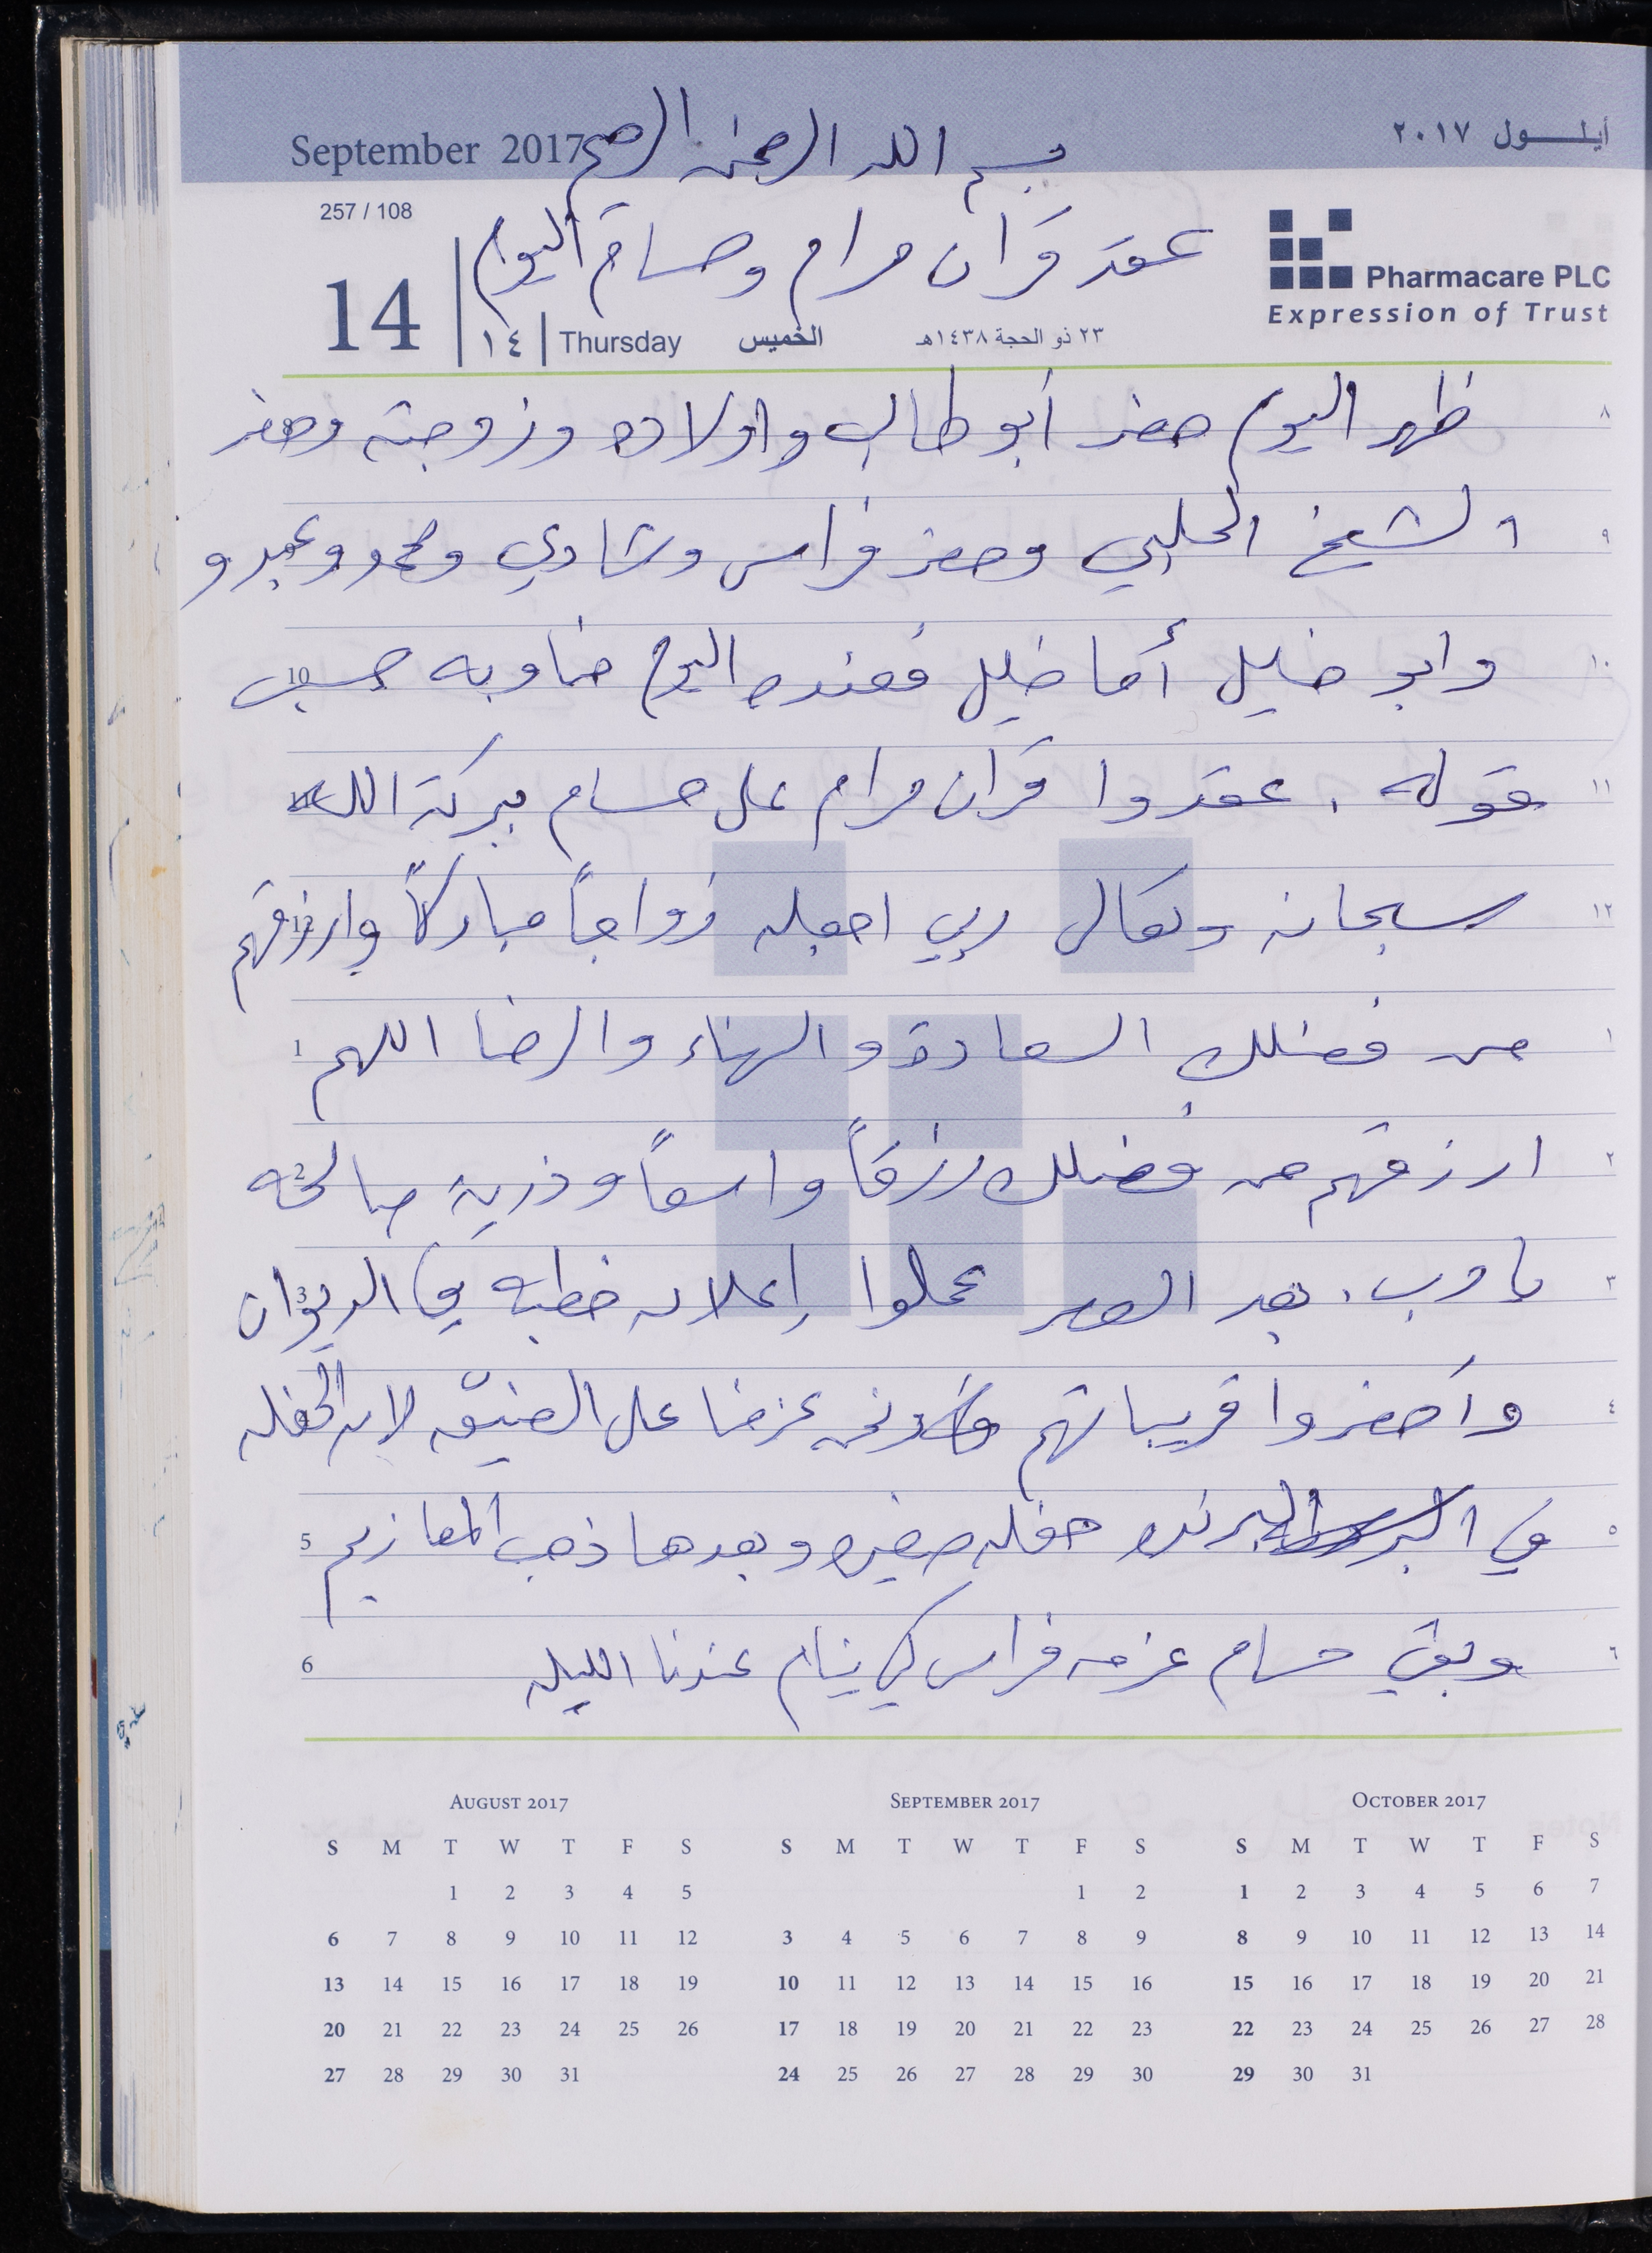 September 2017
أيلـــول ٢٠١٧
بسم الله الرحمن الرحيم
257 / 108
عقد قران مرام وحسام اليوم
Pharmacare PLC
Expression of Trust
14
١٤ | Thursday الخميس ٢٣ ذو الحجة ١٤٣٨هـ
٨ ظهر اليوم حضر أبو طالب واولاده وزوجته وحضر
٩ الشيخ الحلبي وحضر فراس وشادي ومحمد وعبد و
١٠ وابو خليل أما خليل فعنده اليوم مناوبه حسب 10
١١ قوله . عقدوا قران مرام على حسام ببركة الله 11
١٢ سبحانه وتعالى ربي اجعله زواجاً مباركاً وارزقهم 12
١ من فضلك السعادة والهناء والرضا اللهم 1
٢ ارزقهم من فضلك رزقاً واسعاً وذرية صالحه 2
٣ يا رب . بعد العصر عملوا إعلان خطبه في الديوان 3
٤ وأحضروا قريباتهم ونحن عزمنا على الضيّق لان الحفله
٥ في البرنده حفله صغيره وبعدها ذهب المعازيم 5
٦ وبقي حسام عزمه فراس كي ينام عندنا الليله 6
AUGUST 2017
S M T W T F S
1 2 3 4 5
6 7 8 9 10 11 12
13 14 15 16 17 18 19
20 21 22 23 24 25 26
27 28 29 30 31
SEPTEMBER 2017
S M T W T F S
1 2
3 4 5 6 7 8 9
10 11 12 13 14 15 16
17 18 19 20 21 22 23
24 25 26 27 28 29 30
OCTOBER 2017
S M T W T F S
1 2 3 4 5 6 7
8 9 10 11 12 13 14
15 16 17 18 19 20 21
22 23 24 25 26 27 28
29 30 31